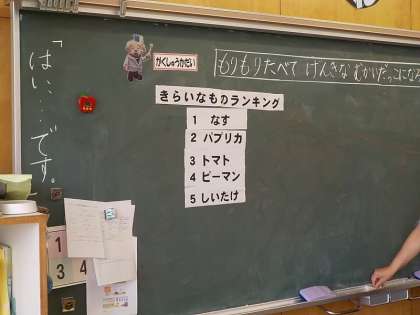 がくしゅうかだい
もりもりたべて げんきな むかいだっこになろ
「はい……です。
きらいなものランキング
1 なす
2 パプリカ
3 トマト
4 ピーマン
5 しいたけ
1
3 4